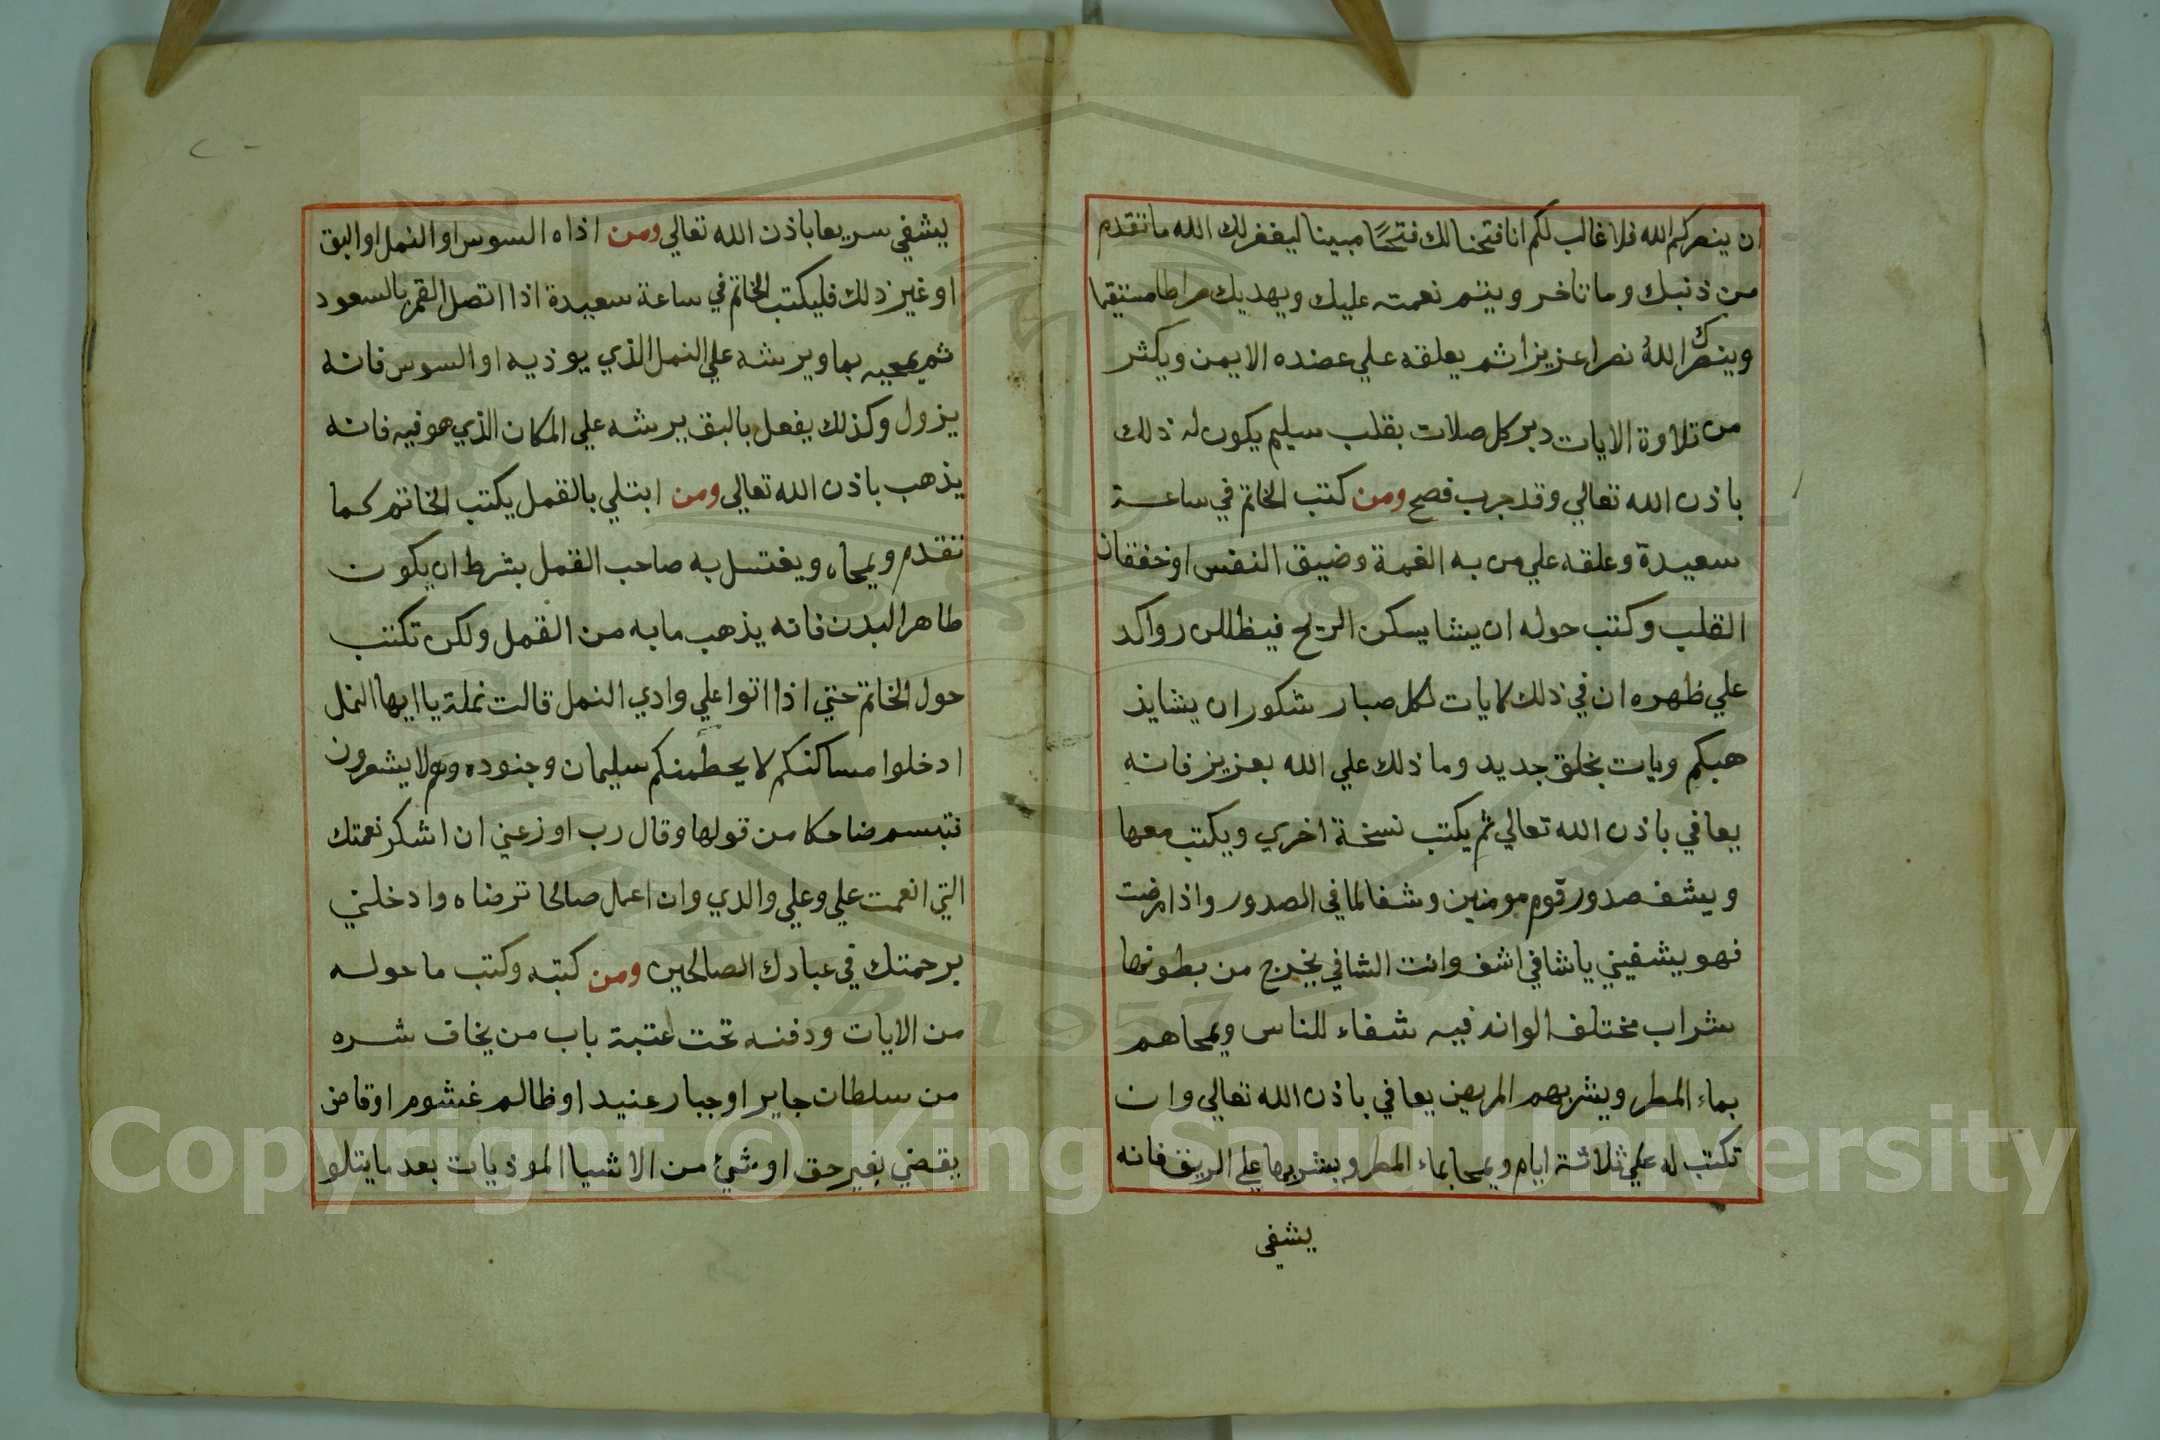 ان ينصركم الله فلا غالب لكم انا فتحنا لك فتحًا مبينا ليغفر لك الله ما تقدم
من ذنبك وما تاخر ويتم نعمته عليك ويهديك صراطا مستقيما
وينصرك اللهُ نصرا عزيزا ثم يعلقه علي عضده الايمن ويكثر
من تلاوة الايات دبر كل صلات بقلب سليم يكون له ذلك
باذن الله تعالي وقد جرب فصح ومن كتب الخاتم في ساعة
سعيدة وعلقه علي من به الغمة وضيق النفس او خفقان
القلب وكتب حوله ان يشا يسكن الريح فيظللن رواكد
علي ظهره ان في ذلك لايات لكل صبار شكور ان يشايذ
هبكم ويات بخلق جديد وما ذلك علي الله بعزيز فانه
يعافي باذن الله تعالي ثم يكتب نسخة اخري ويكتب معها
ويشف صدور قوم مومنين وشفا لما في الصدور واذا مرضت
فهو يشفيني يا شافي اشف وانت الشافي يخرج من بطونها
شراب مختلف الوانه فيه شفاء للناس ويمحاهم
بماء المطر ويشربهم المريض يعافي باذن الله تعالي وان
تكتب له علي ثلاثة ايام ويمحا بماء المطر ويشربها علي الريق فانه
يشفي
يشفي سريعا باذن الله تعالي ومن اذاه السوس او النمل او البق
او غير ذلك فليكتب الخاتم في ساعة سعيدة اذا اتصل القمر بالسعود
ثم يمحيه بما ويرشه علي النمل الذي يوذيه او السوس فانه
يزول وكذلك يفعل بالبق يرشه علي المكان الذي هو فيه فانه
يذهب باذن الله تعالي ومن ابتلي بالقمل يكتب الخاتم كما
تقدم ويمحاه ويغتسل به صاحب القمل بشرط ان يكون
طاهر البدن فانه يذهب ما به من القمل ولكن تكتب
حول الخاتم حتي اذا اتوا علي وادي النمل قالت نملة يا ايها النمل
ادخلوا مساكنكم لا يحطمنكم سليمان وجنوده وهم لا يشعرون
فتبسم ضاحكا من قولها وقال رب اوزعني ان اشكر نعمتك
التي انعمت علي وعلي والدي وان اعمل صالحا ترضاه وادخلني
برحمتك في عبادك الصالحين ومن كتبه وكتب ما حوله
من الايات ودفنه تحت عتبة باب من يخاف شره
من سلطان جاير او جبار عنيد او ظالم غشوم او قاض
يقضي بغير حق او شيء من الاشيا الموذيات بعد ما يتلوا
Copyright © King Saud University
1957